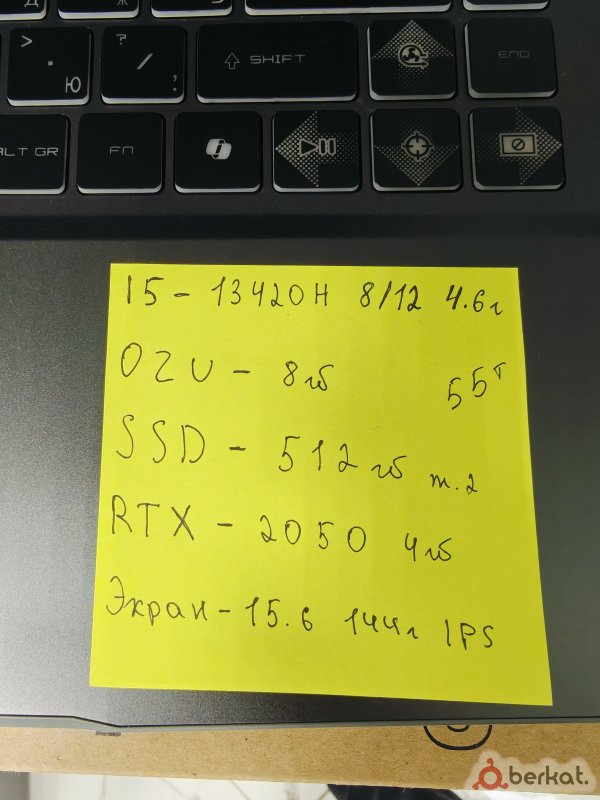 >
.
Ю
?
/
;
SHIFT
END
ALT GR
FN
I5 - 13420H 8/12 4.6г
OZU - 8гб 55т
SSD - 512гб m.2
RTX - 2050 4гб
Экран - 15.6 144г IPS
berkat.